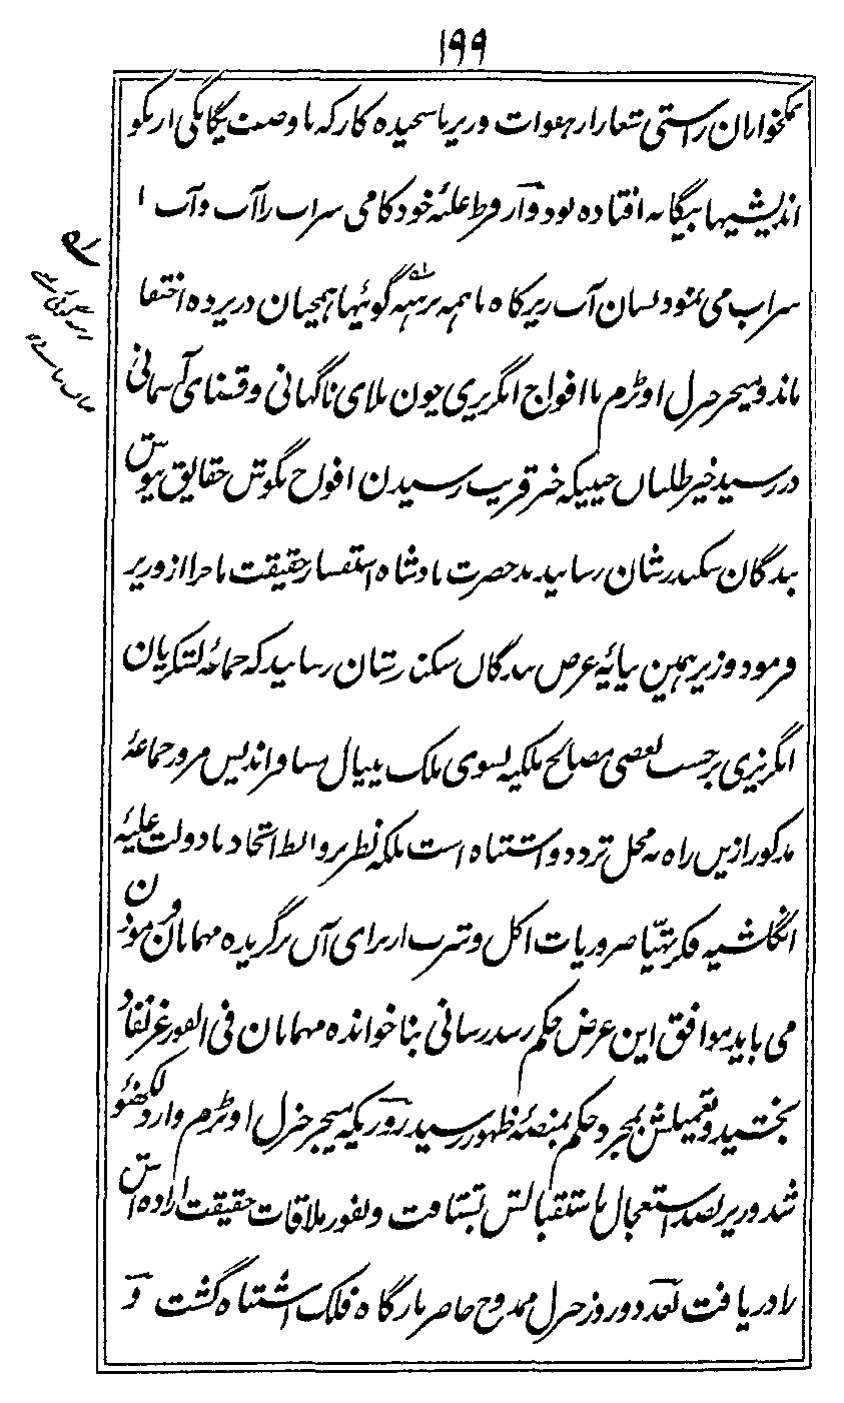 ۱۹۹
نمکخواران راستی شعار از هفوات وزیر ناسنجیده کار که با وصف یگانگی از نکو
اندیشیها بیگانه افتاده بود و از فرط غلبهٔ خودکامی سراب را آب و آب را
سراب می نمود بسان آب زیر کاه با همه برهنه گوئیها همچنان در پرده اختفا
ماند و میجر جنرل اوٹرم با افواج انگریزی چون بلای ناگهانی و قضای آسمانی
در رسید خیر طلبان حینیکه خبر قریب رسیدن افواج بگوش حقایق نیوش
بندگان سکندر شان رسانیدند حضرت بادشاه استفسار حقیقت ماجرا از وزیر
فرمود وزیر همین بپایهٔ عرض بندگان سکندر شان رسانید که جماعهٔ لشکریان
انگریزی بر حسب بعضی مصالح ملکیه بسوی ملک نیپال مسافراندپس مرور جماعهٔ
مذکور ازین راه نه محل تردد و اشتباه است بلکه نظر بروابط اتحاد با دولت علیهٔ
انگلشیه فکر تهیّا ضروریات اکل و شرب از برای آن برگزیده مهمانان فرمودن
می باید موافق این عرض حکم رسدرسانی بناخوانده مهمانان فی الفور عز نفاذ
بخشید و تعمیلش بمجرد حکم بمنصهٔ ظهور رسید روزیکه میجر جنرل اوٹرم وارد لکهنؤ
شد وزیر بصد استعجال باستقبالش بشتافت و بفور ملاقات حقیقت اراده اش
را دریافت بعد دو روز جنرل ممدوح حاضر بارگاه فلک اشتباه گشت و